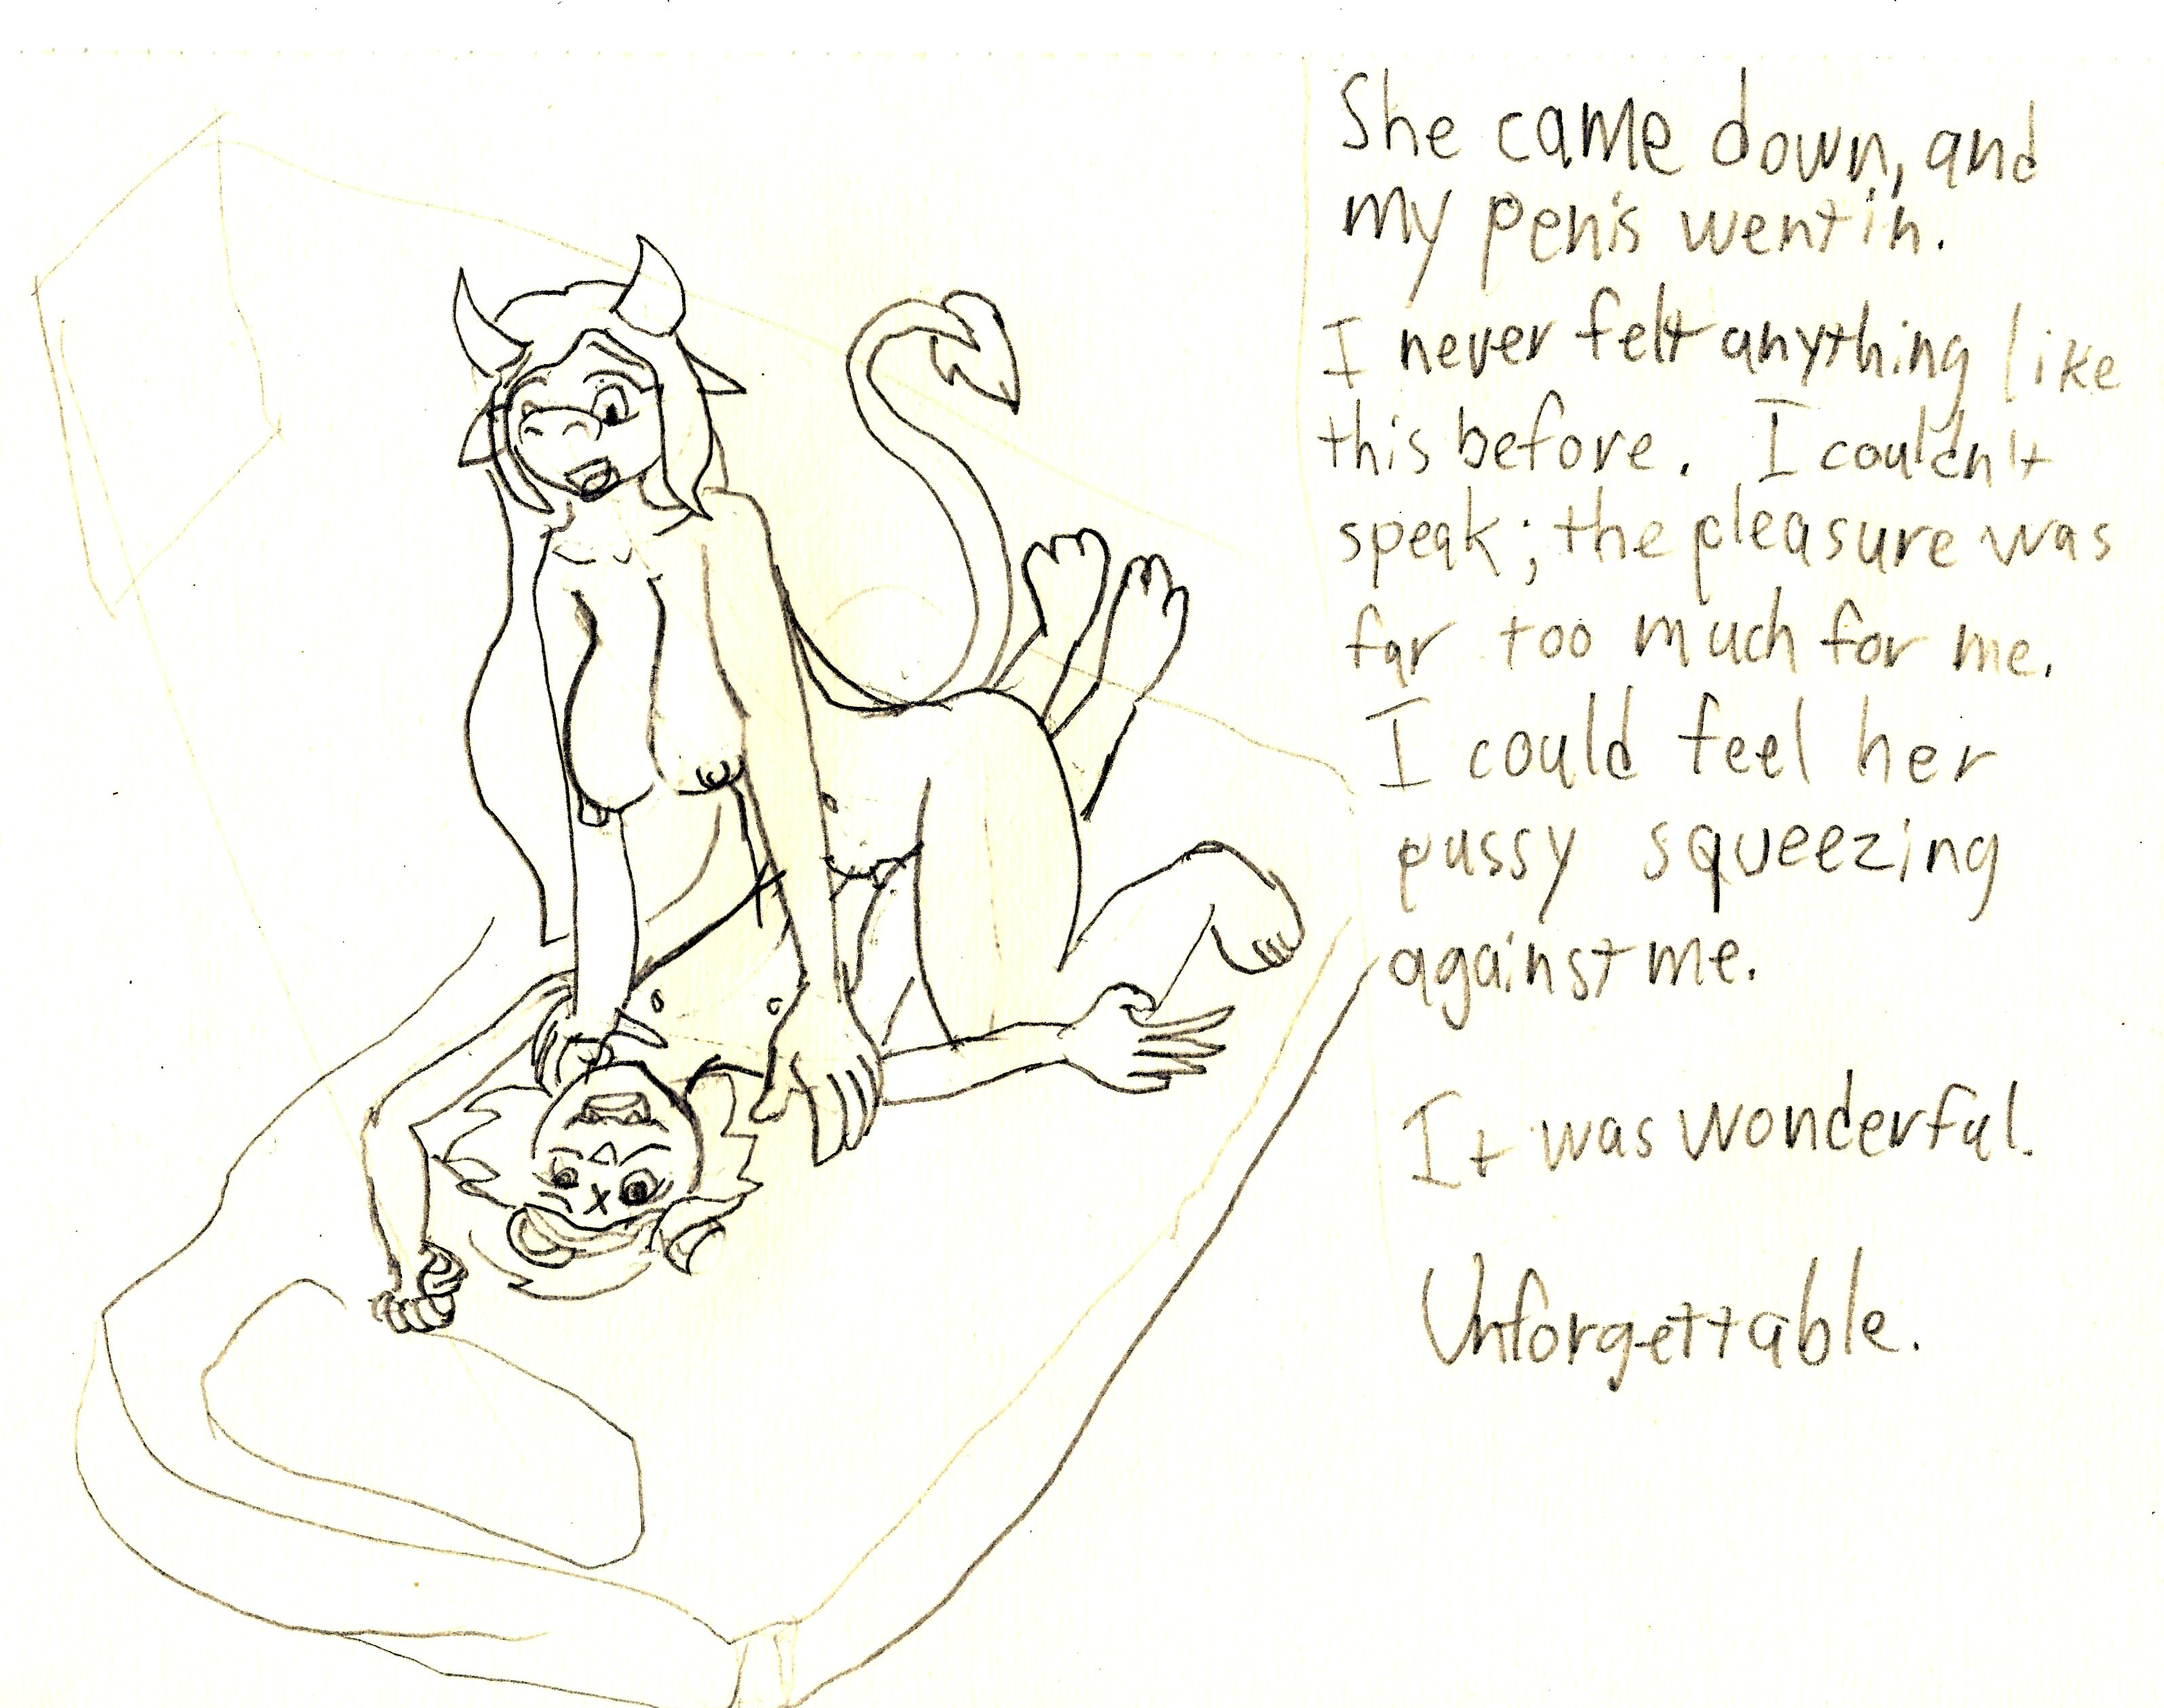 She came down, and
my penis went in.
I never felt anything like
this before. I couldn't
speak; the pleasure was
far too much for me.
I could feel her
pussy squeezing
against me.
It was wonderful.
Unforgettable.